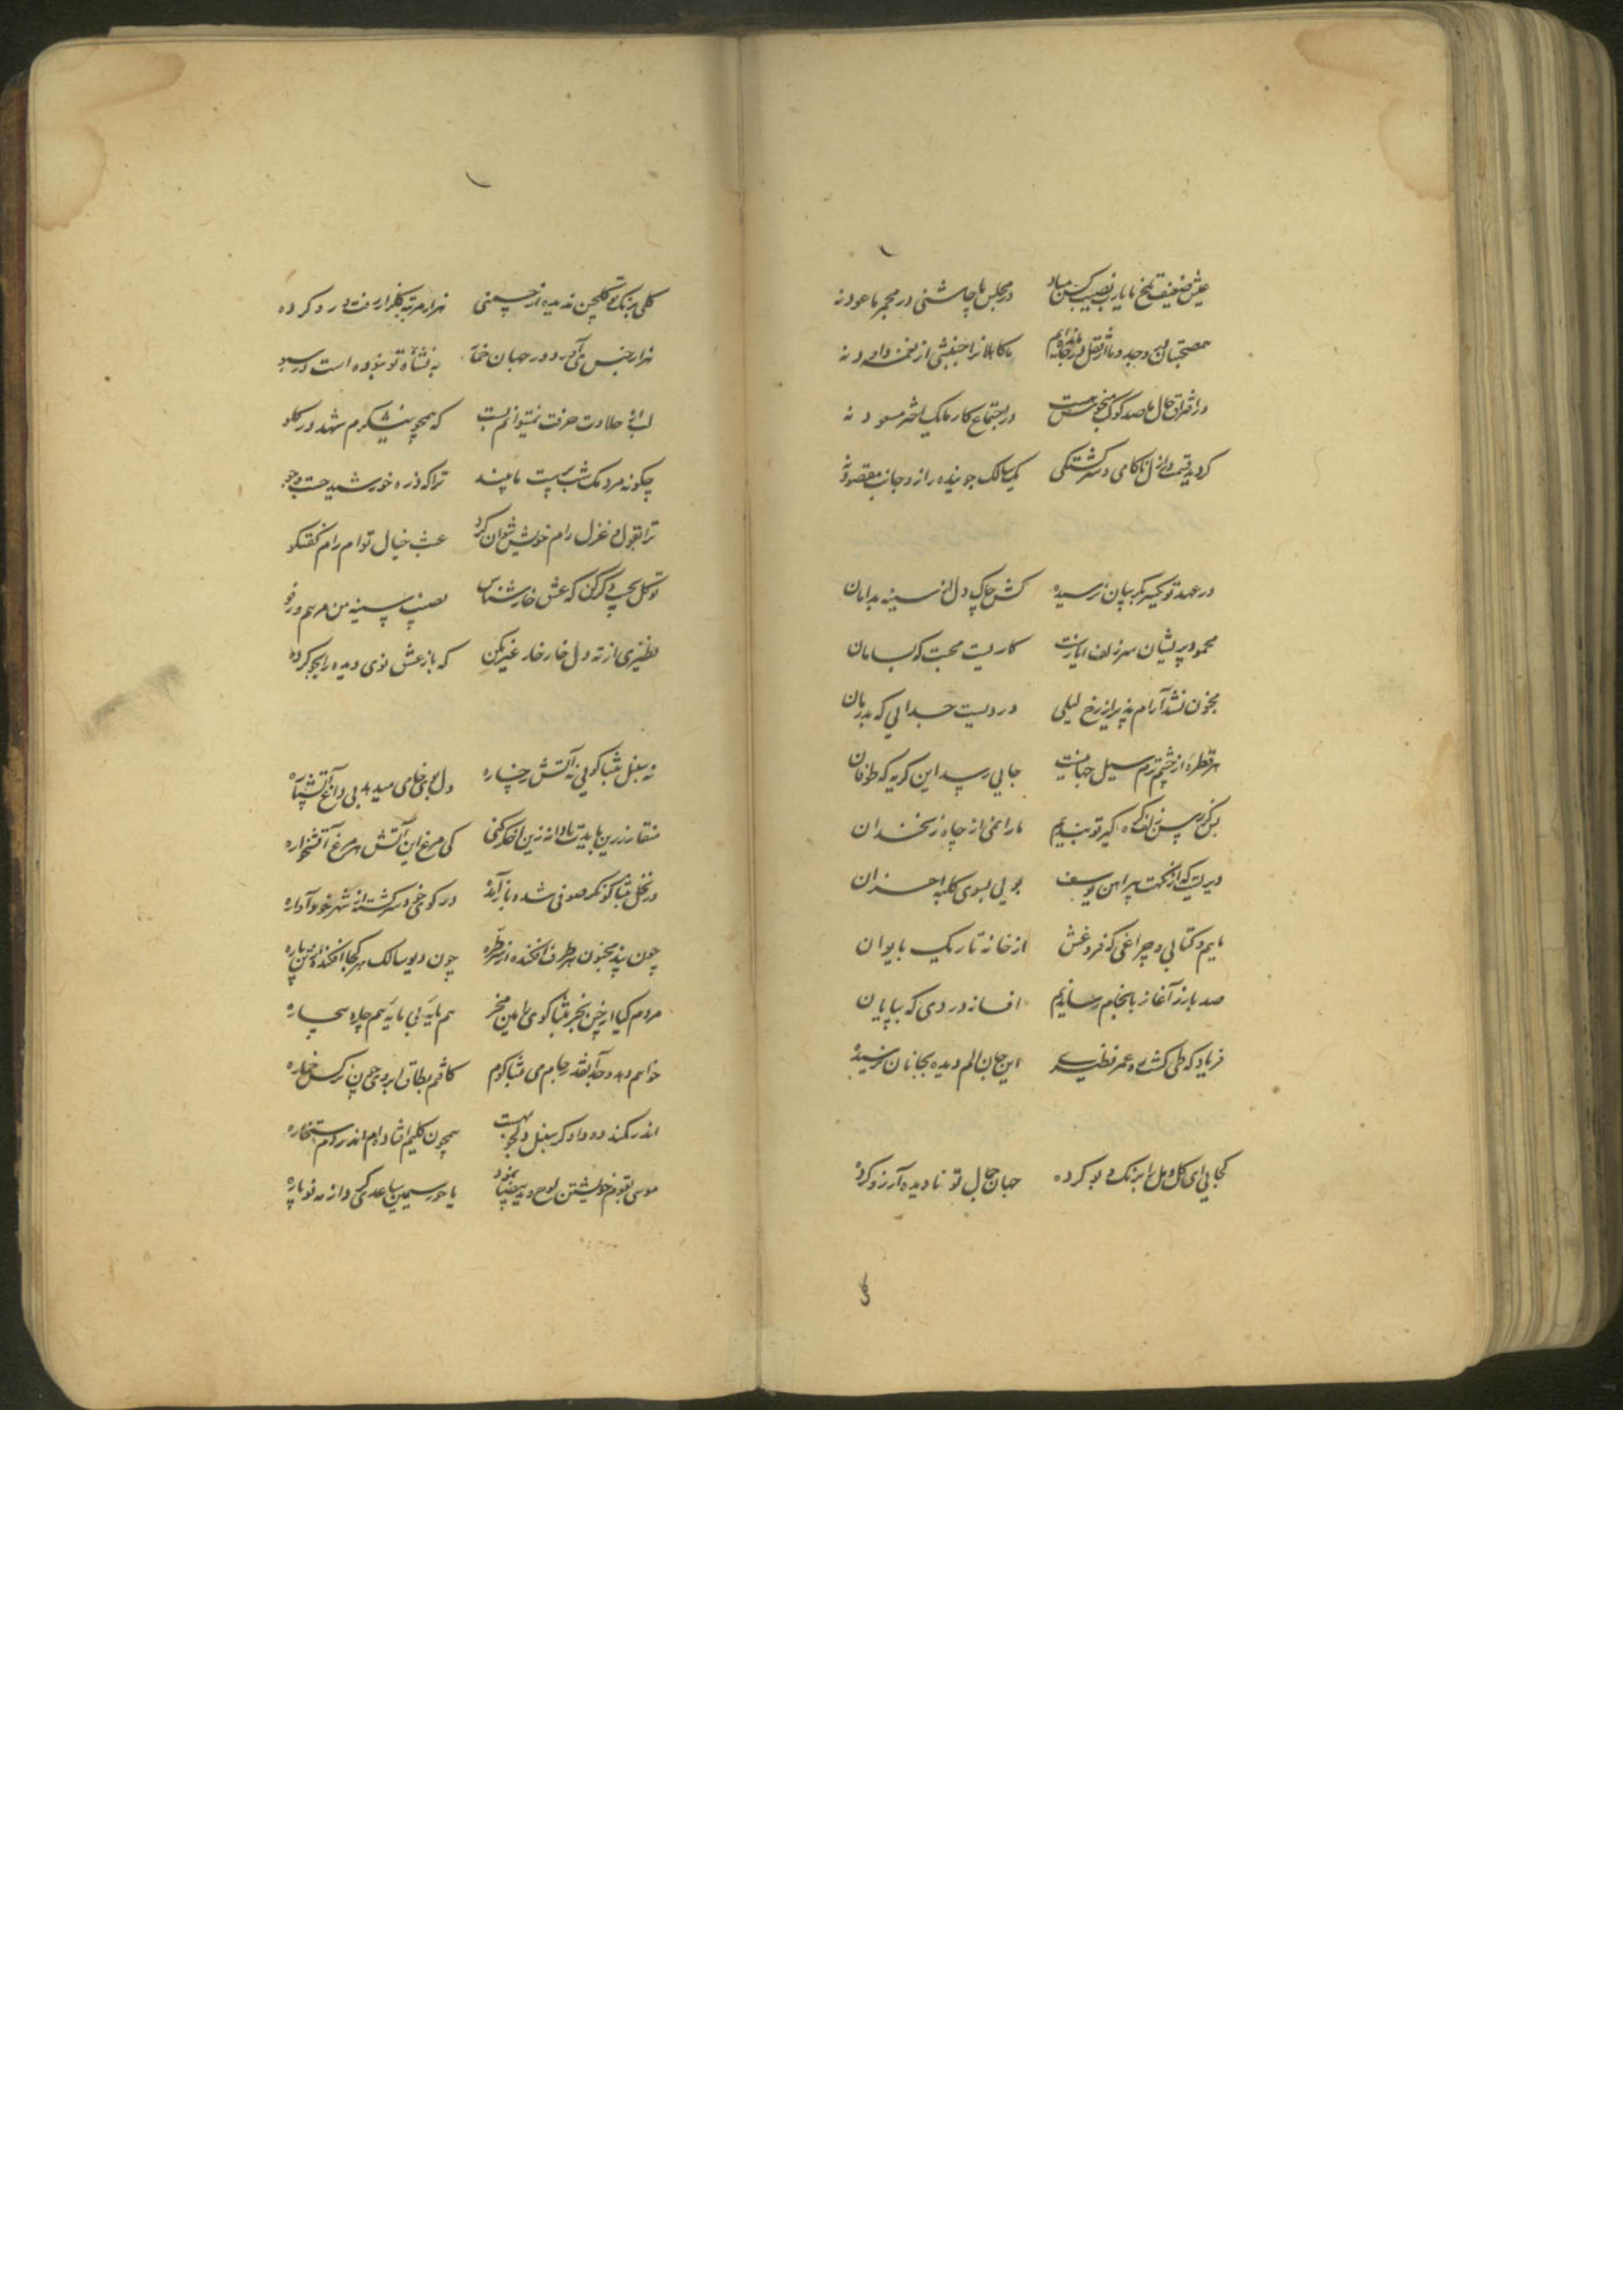 عیش ضعیف تلخ ما یارب نصیب کس مباد در مجلس ما چاشنی در مجمر ما عود نه
همصحبتان در وجد و ما از ثقل در جا مانده‌ایم ما کاهلانرا جنبشی از نغمه داود نه
در افتراق حال ما صد کوکب منحوس هست در اجتماع کار ما یک اختر مسعود نه
کردید قیمت در ازل ناکامی و سرکشتکی یک سالک جوینده را زو جانب مقصود
در عهد تو یکسر بکریبان نرسیده کش چاک دل از سینه بدامان
محمود پریشان سر زلف ایازست کاریست محبت که بسامان
مجنون نشد آرام پذیر از رخ لیلی دردیست جدایی که بدرمان
هر قطره از چشم ترم سیل جهانیست جایی رسید این کریه که طوفان
بس کز رسن زلف کره کیر تو بندیم ما را بمی از چاه زنخدان
دیریست که از نکهت پیراهن یوسف بویی بسوی کلبه احزان
ماییم و کتابی و چراغی که فروغش از خانه تاریک بایوان
صد بار ز آغاز بانجام رساندیم افسانه دردی که بپایان
فریاد که طی کشت ره عمر نظیری این جان الم دیده بجانان نرسیده
کجایی ای کل و مل را برنک و بو کرده جهان جمال تو نادیده آرزو کرده
کلی برنک تو کلچین ندیده از چمنی هزار مرتبه کلزار رفت و رو کرده
هزار جنس می آورد در جهان خمار به نشأه تو نبوده است در سبو
لب از حلاوت حرفت نمیتوانم بست که همچو نیشکرم شهد در کلو
چکونه مردمک شب پرست ما بیند ترا که ذره خورشید جست وجو
ترا بقول و غزل رام خویش نتوان کرد عبث خیال تو ام رام کفتکو
توکل بجیب دکر کن که عشق خار شناس نصیب سینه من مرهم و رفو
نظیری از ته دل خار خار غیر بکن که باز عشق نوی دیده را بجو کرده
نه سنبل تنباکویی نه آتش رخساره دل بوی خامی میدهد بی داغ آتشپاره
منقار زرین بایدت تا دانه زین اخکر کنی کی مرغ این آتش بود هر مرغ آتشخواره
در نخل تنباکو نکر صوفی شده باز آمده در کوی خود سرکشته از شهر خود آواره
چون بید مجنون هر طرف افکنده از سر طره چون دیو سالک هر کجا افکنده از تن پاره
مردم کیا از چین نخر تنباکوی مهین بخر هم مایه بی مایه هم چاره بیچاره
خواهم دهد وجد آنقدر جام می تنباکوم کافتم بطاق ابروی چون نرکس خماره
اندر کمند دود او کر سنبل دلجو بهست همچون کلیم افتاده‌ام اندر دم سحاره
موسی بقوم خویشتن لوح و ید بیضا نمود یا حور سیمین ساعدی کرد از مه نو یاره